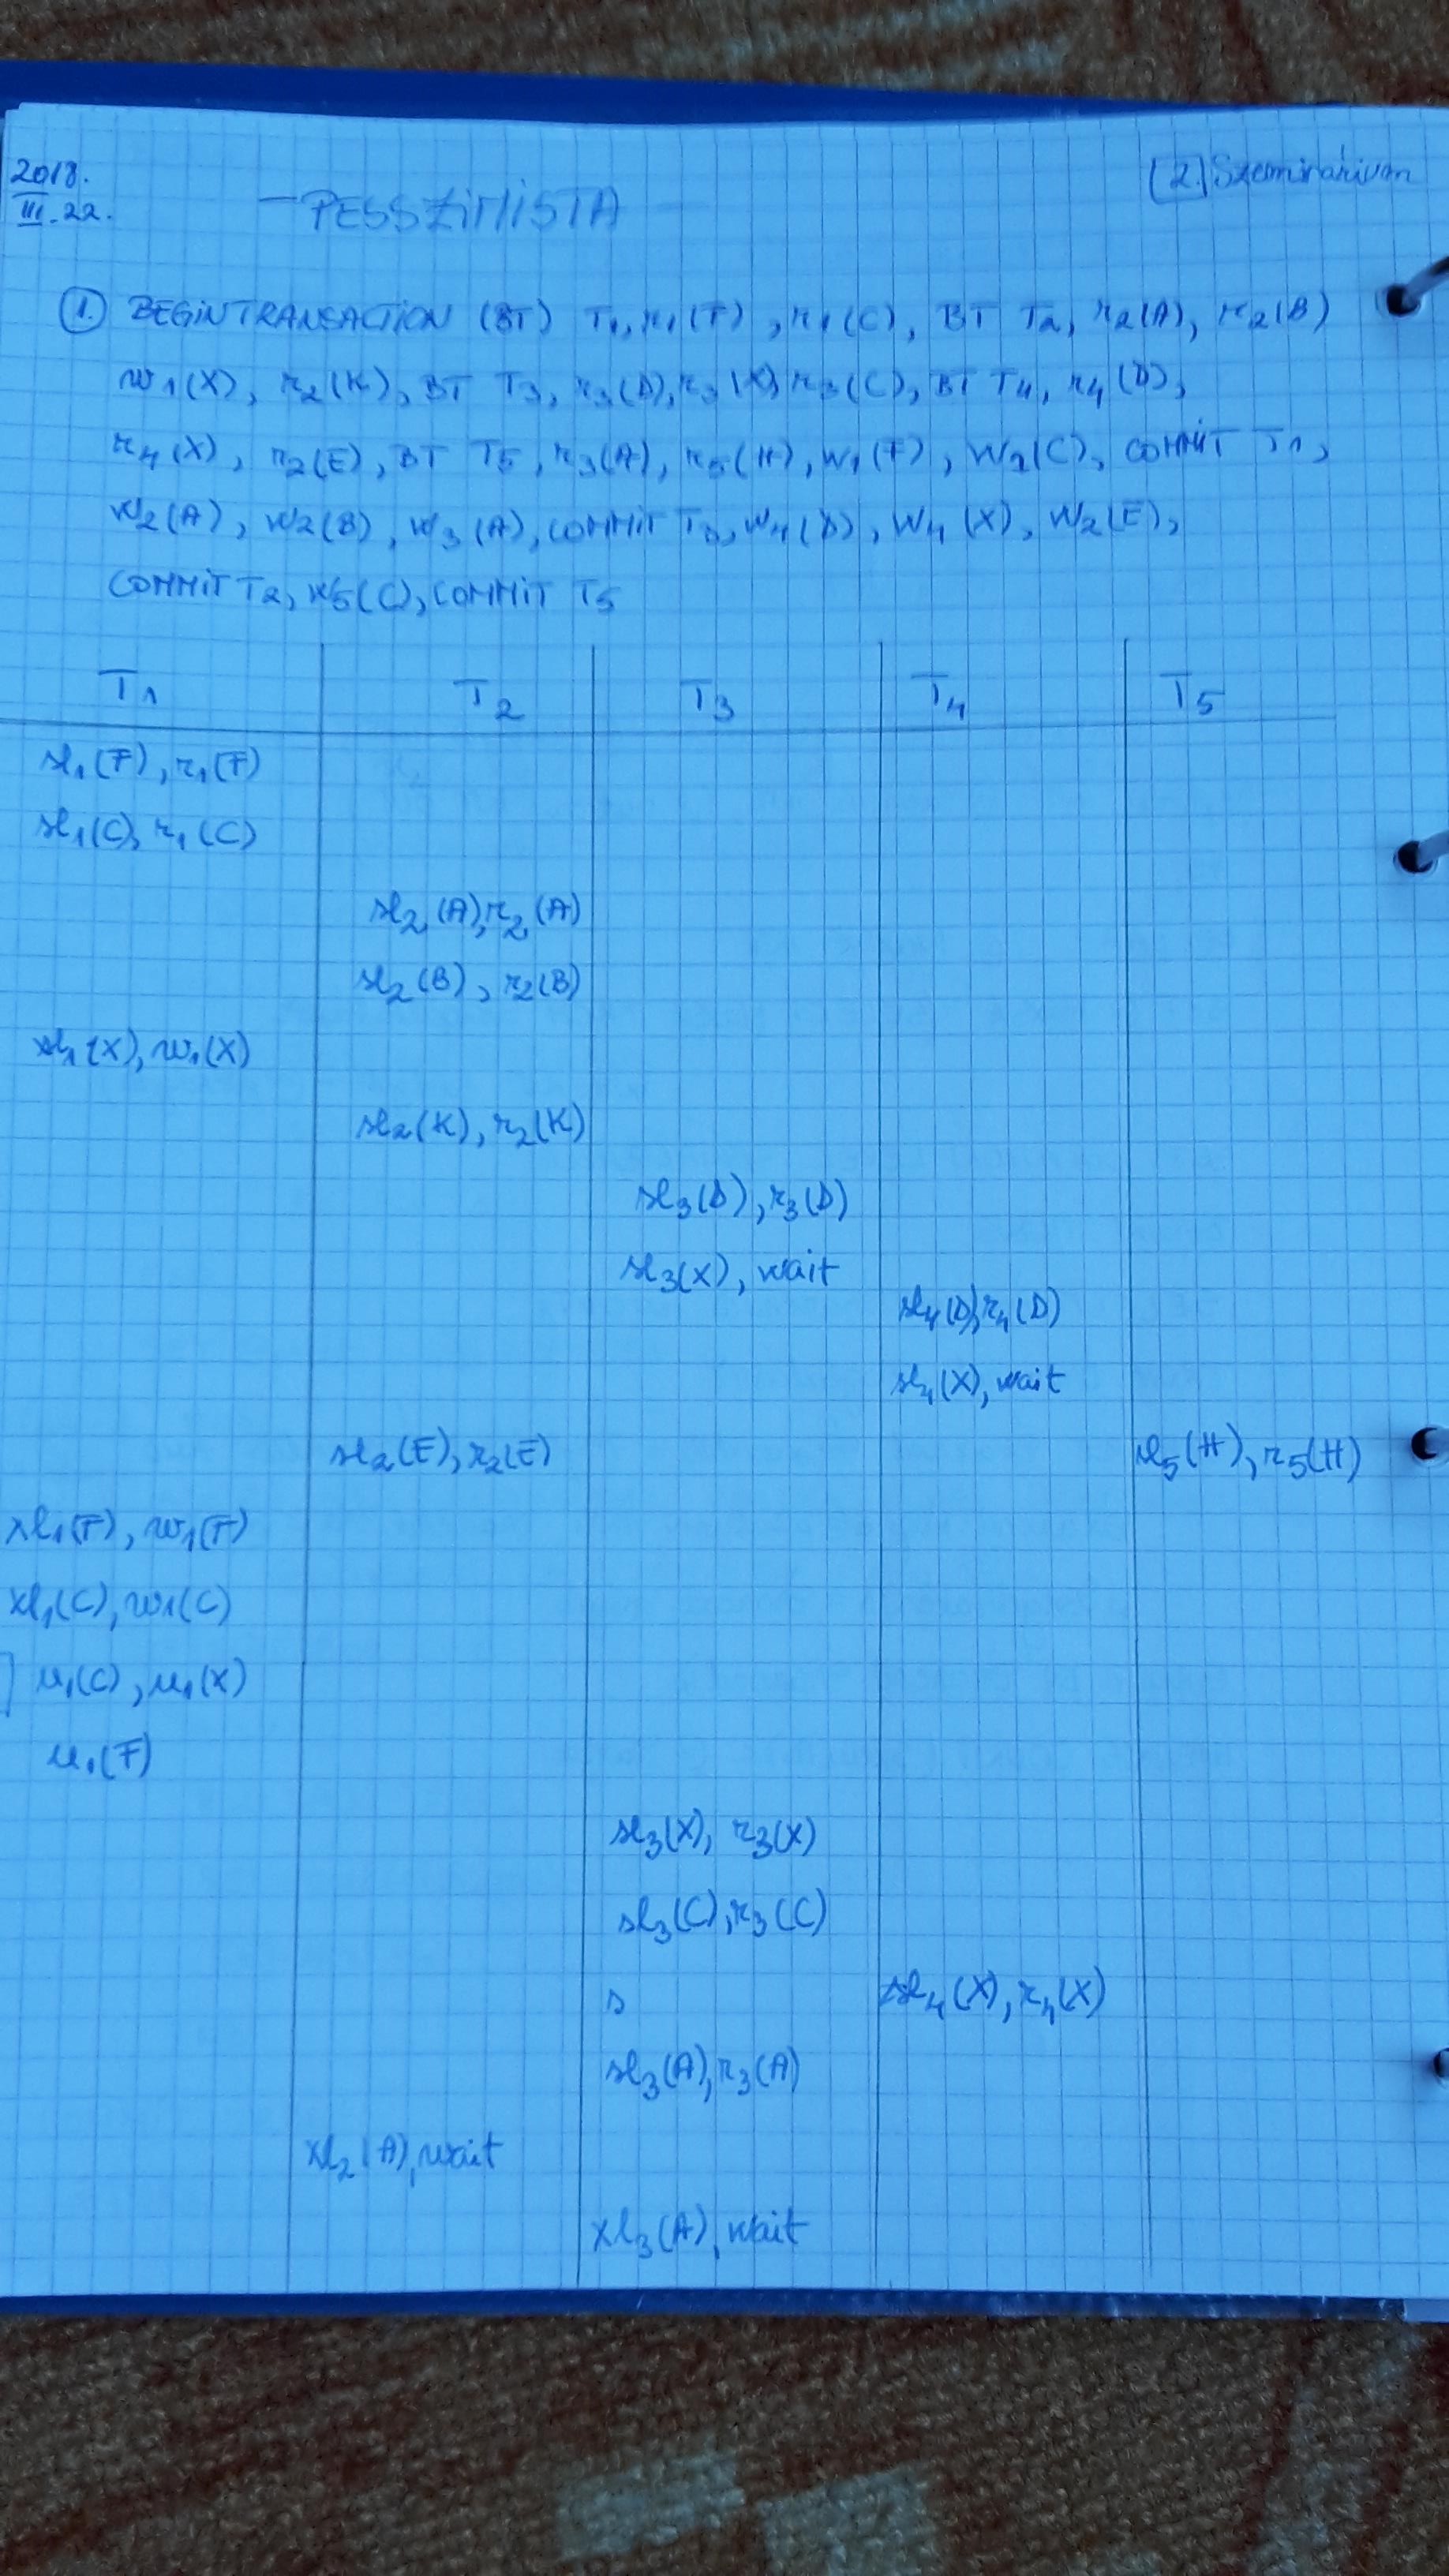 2018.
III. 22.
- PESSZIMISTA -
[2.] Szeminárium
1. BEGIN TRANSACTION (BT) T1, r1(F), r1(C), BT T2, r2(A), r2(B)
w1(X), r2(K), BT T3, r3(D), r3(X), r3(C), BT T4, r4(D),
r4(X), r2(E), BT T5, r3(A), r5(H), w1(F), w1(C), COMMIT T1,
w2(A), w2(B), w3(A), COMMIT T3, w4(D), w4(X), w2(E),
COMMIT T2, r5(C), COMMIT T5
T1 T2 T3 T4 T5
sl1(F), r1(F)
sl1(C), r1(C)
sl2(A), r2(A)
sl2(B), r2(B)
xl1(X), w1(X)
sl2(K), r2(K)
sl3(D), r3(D)
sl3(X), wait
sl4(D), r4(D)
sl4(X), wait
sl2(E), r2(E) sl5(H), r5(H)
xl1(F), w1(F)
xl1(C), w1(C)
u1(C), u1(X)
u1(F)
sl3(X), r3(X)
sl3(C), r3(C)
s sl4(X), r4(X)
sl3(A), r3(A)
xl2(A), wait
xl3(A), wait